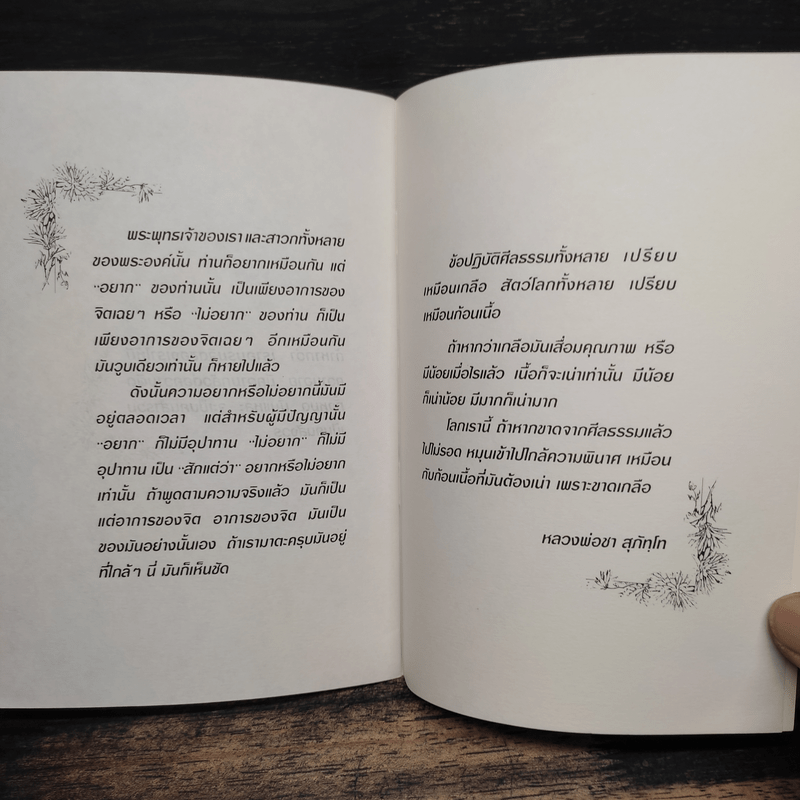 พระพุทธเจ้าของเรา และสาวกทั้งหลาย
ของพระองค์นั้น ท่านก็อยากเหมือนกัน แต่
"อยาก" ของท่านนั้น เป็นเพียงอาการของ
จิตเฉยๆ หรือ "ไม่อยาก" ของท่าน ก็เป็น
เพียงอาการของจิตเฉยๆ อีกเหมือนกัน
มันวูบเดียวเท่านั้น ก็หายไปแล้ว
ดังนั้นความอยากหรือไม่อยากนี้มันมี
อยู่ตลอดเวลา แต่สำหรับผู้มีปัญญานั้น
"อยาก" ก็ไม่มีอุปาทาน "ไม่อยาก" ก็ไม่มี
อุปาทาน เป็น "สักแต่ว่า" อยากหรือไม่อยาก
เท่านั้น ถ้าพูดตามความจริงแล้ว มันก็เป็น
แต่อาการของจิต อาการของจิต มันเป็น
ของมันอย่างนั้นเอง ถ้าเรามาตะครุบมันอยู่
ที่ใกล้ๆ นี่ มันก็เห็นชัด
ข้อปฏิบัติศีลธรรมทั้งหลาย เปรียบ
เหมือนเกลือ สัตว์โลกทั้งหลาย เปรียบ
เหมือนก้อนเนื้อ
ถ้าหากว่าเกลือมันเสื่อมคุณภาพ หรือ
มีน้อยเมื่อไรแล้ว เนื้อก็จะเน่าเท่านั้น มีน้อย
ก็เน่าน้อย มีมากก็เน่ามาก
โลกเรานี้ ถ้าหากขาดจากศีลธรรมแล้ว
ไปไม่รอด หมุนเข้าไปใกล้ความพินาศ เหมือน
กับก้อนเนื้อที่มันต้องเน่า เพราะขาดเกลือ
หลวงพ่อชา สุภัทฺโท